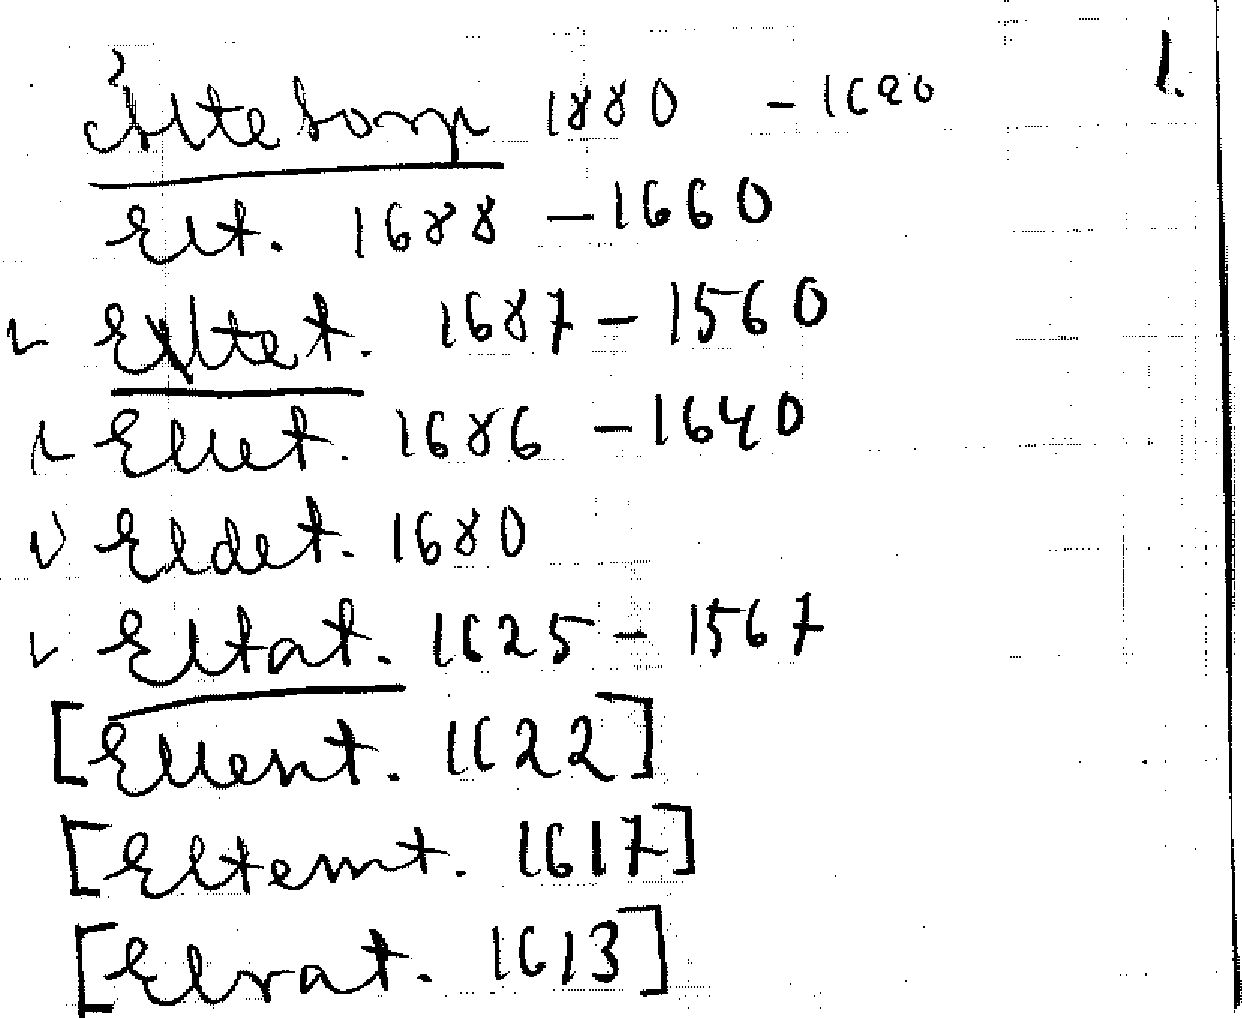 1.
1880 - 1620
Elt. 1688 - 1660
Elltet. 1687 - 1560
Ellet. 1686 - 1640
Eldet. 1680
Eltat. 1625 - 1567
[Ellent. 1622]
[Eltemt. 1617]
[Elrat. 1613]